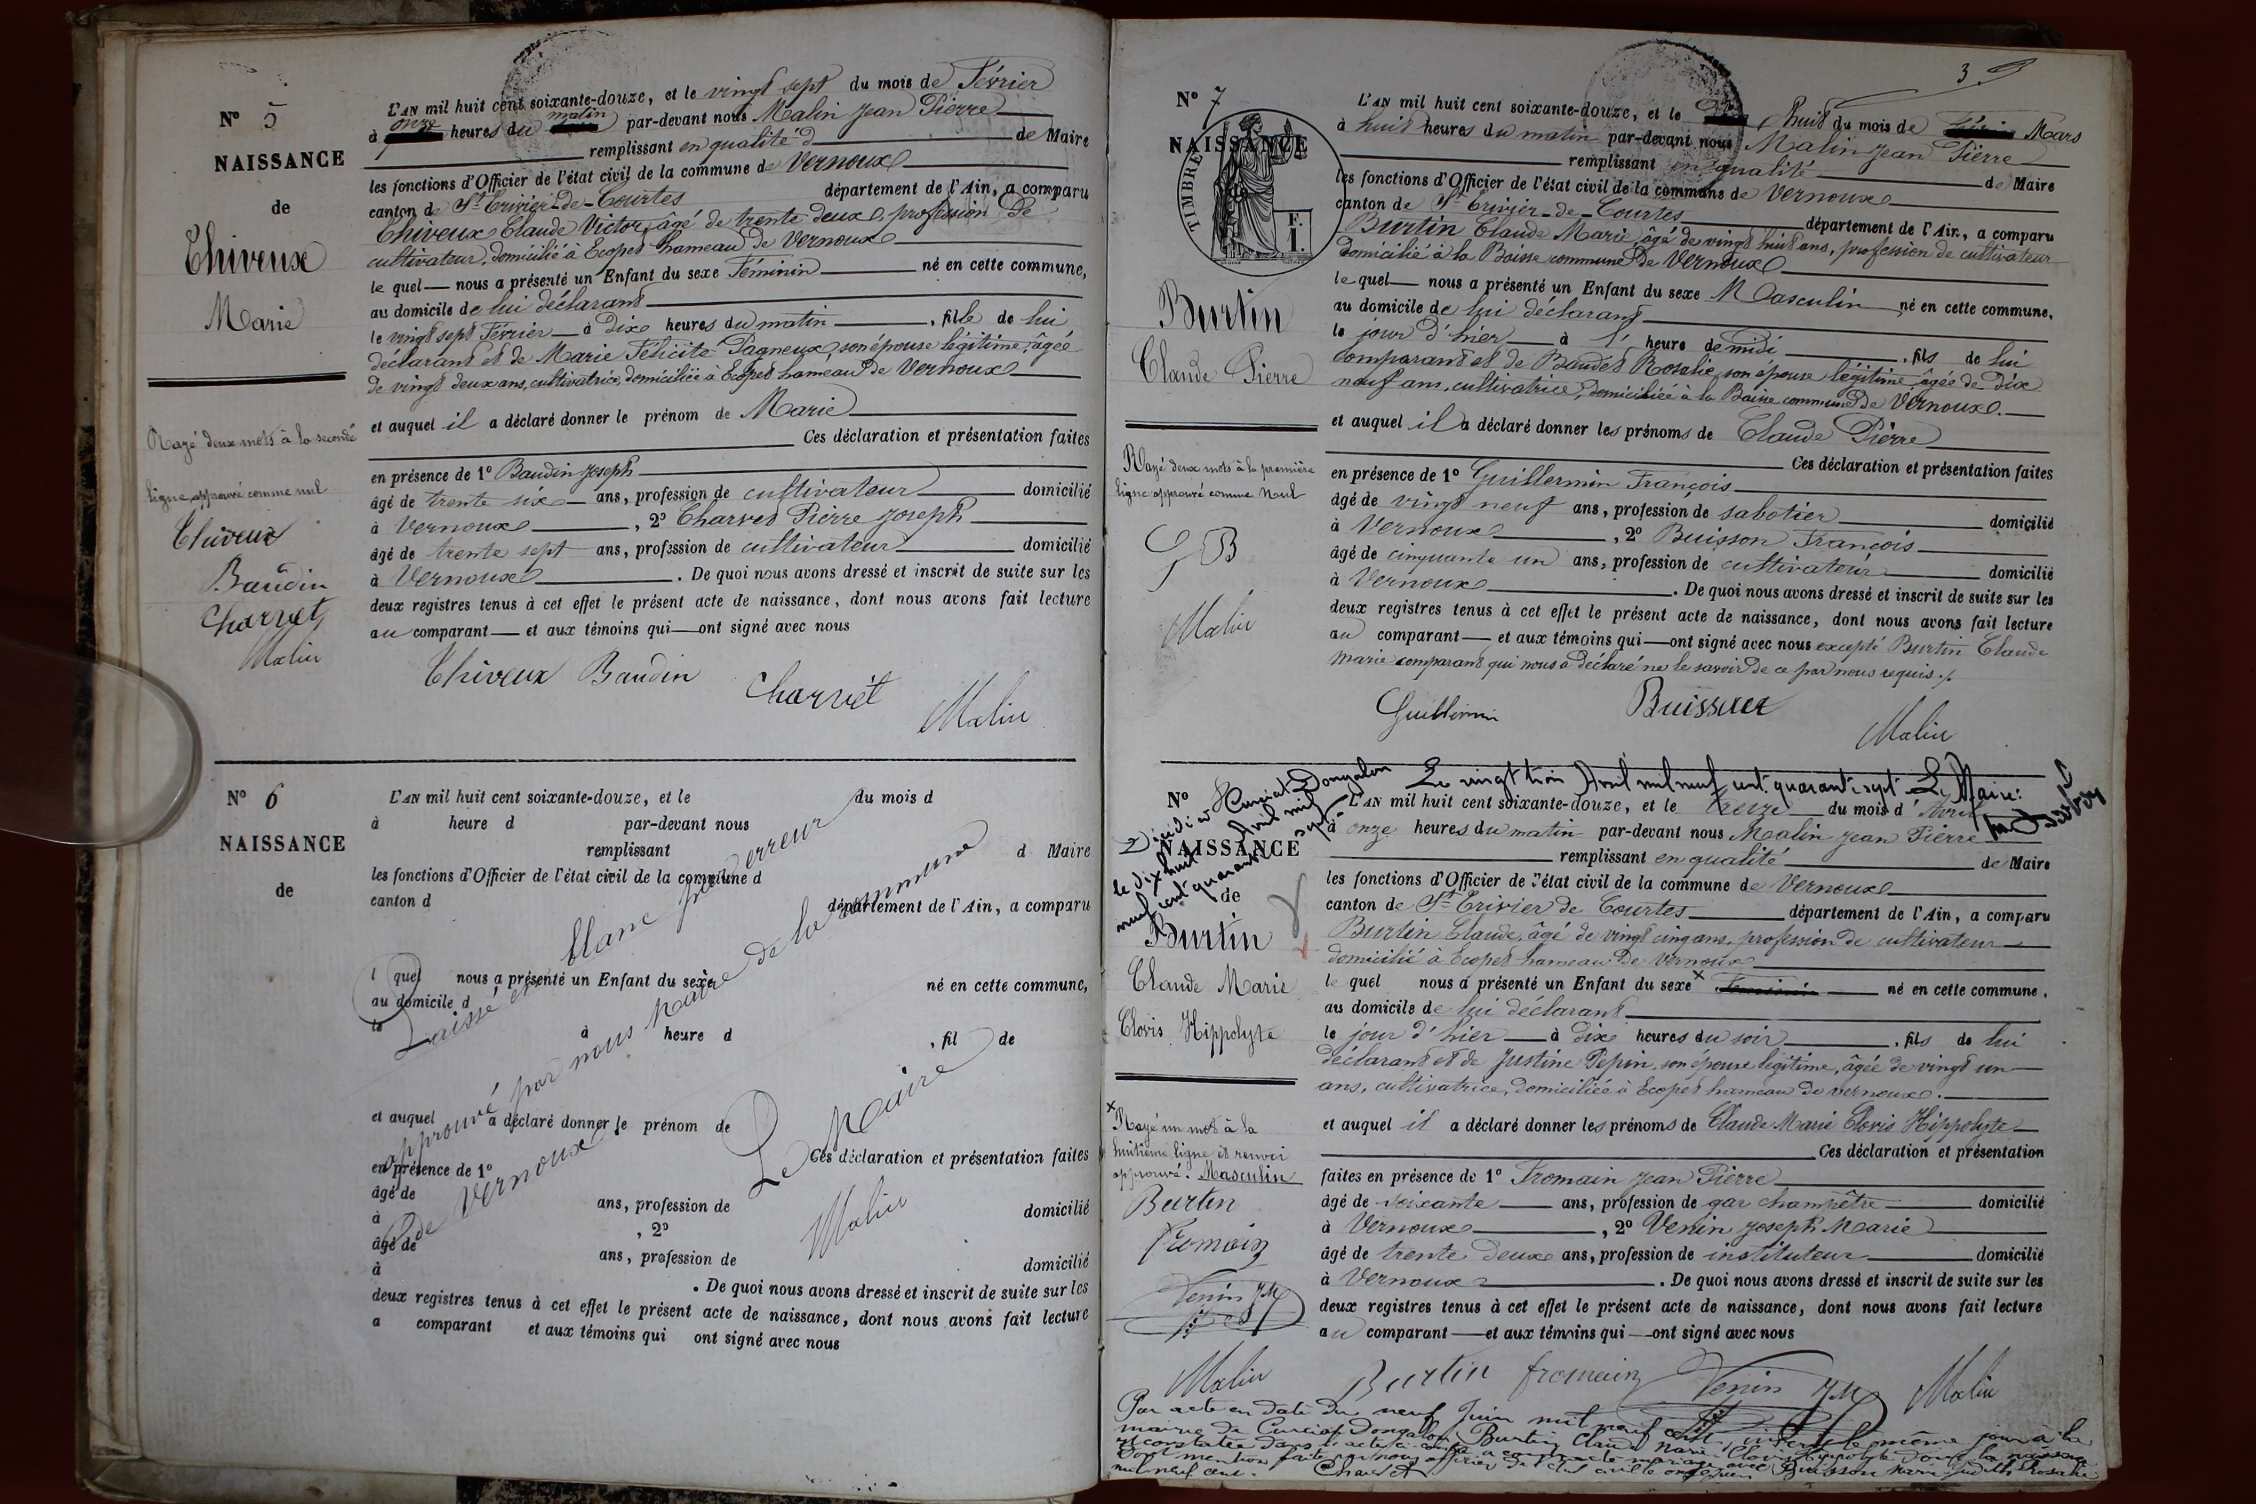 N° 5
NAISSANCE
de
Thiveux
Marie
Rayé deux mots à la seconde
ligne, approuvé comme nul
Thiveux
Baudin
Charvet
Malin
L'AN mil huit cent soixante-douze, et le vingt sept du mois de Février
à onze heures du matin par-devant nous Malin Jean Pierre
remplissant en qualité d de Maire
les fonctions d'Officier de l'état civil de la commune de Vernoux
canton de St Trivier-de-Courtes département de l'Ain, a comparu
Thiveux Claude Victor, âgé de trente deux, profession de
cultivateur, domicilié à Ecopet hameau de Vernoux
le quel nous a présenté un Enfant du sexe Féminin né en cette commune,
au domicile de lui déclarant
le vingt sept Février à dix heures du matin, fille de lui
déclarant et de Marie Félicité Pagneux, son épouse légitime, âgée
de vingt deux ans, cultivatrice, domiciliée à Ecopet hameau de Vernoux
et auquel il a déclaré donner le prénom de Marie
Ces déclaration et présentation faites
en présence de 1° Baudin Joseph
âgé de trente six ans, profession de cultivateur domicilié
à Vernoux, 2° Charvet Pierre Joseph
âgé de trente sept ans, profession de cultivateur domicilié
à Vernoux. De quoi nous avons dressé et inscrit de suite sur les
deux registres tenus à cet effet le présent acte de naissance, dont nous avons fait lecture
au comparant et aux témoins qui ont signé avec nous
Thiveux Baudin Charvet Malin
N° 6
NAISSANCE
de
L'AN mil huit cent soixante-douze, et le du mois d
à heure d par-devant nous
remplissant d Maire
les fonctions d'Officier de l'état civil de la commune d
canton d département de l'Ain, a comparu
l quel nous a présenté un Enfant du sexe né en cette commune,
au domicile d
le à heure d , fil de
et auquel a déclaré donner le prénom de
Ces déclaration et présentation faites
en présence de 1°
âgé de ans, profession de domicilié
à , 2°
âgé de ans, profession de domicilié
à . De quoi nous avons dressé et inscrit de suite sur les
deux registres tenus à cet effet le présent acte de naissance, dont nous avons fait lecture
a comparant et aux témoins qui ont signé avec nous
Laissé en blanc par erreur
approuvé par nous Maire de la commune
de Vernoux.
Le Maire
Malin
3
N° 7
NAISSANCE
TIMBRE
F.
1.
Burtin
Claude Pierre
Rayé deux mots à la première
ligne approuvé comme nul
G B
Malin
L'AN mil huit cent soixante-douze, et le huit du mois de Mars
à huit heures du matin par-devant nous Malin Jean Pierre
remplissant en qualité de Maire
les fonctions d'Officier de l'état civil de la commune de Vernoux
canton de St Trivier-de-Courtes département de l'Ain, a comparu
Burtin Claude Marie, âgé de vingt huit ans, profession de cultivateur
domicilié à la Baisse commune de Vernoux
le quel nous a présenté un Enfant du sexe Masculin né en cette commune,
au domicile de lui déclarant
le jour d'hier à l' heure de midi, fils de lui
comparant et de Baudet Rosalie, son épouse légitime, âgée de dix
neuf ans, cultivatrice, domiciliée à la Baisse commune de Vernoux.
et auquel il a déclaré donner les prénoms de Claude Pierre
Ces déclaration et présentation faites
en présence de 1° Guillermin François
âgé de vingt neuf ans, profession de sabotier domicilié
à Vernoux, 2° Buisson François
âgé de cinquante un ans, profession de cultivateur domicilié
à Vernoux. De quoi nous avons dressé et inscrit de suite sur les
deux registres tenus à cet effet le présent acte de naissance, dont nous avons fait lecture
au comparant et aux témoins qui ont signé avec nous excepté Burtin Claude
Marie comparant qui nous a déclaré ne le savoir de ce par nous requis.
Guillermin Buisson
Malin
N° 8
NAISSANCE
de
Burtin
Claude Marie
Clovis Hippolyte
Décédé à Curciat Dongalon
le dix huit Avril mil
neuf cent quarante sept
Le vingt trois Avril mil neuf cent quarante sept Le Maire:
Rayé un mot à la
huitième ligne et renvoi
approuvé. Masculin
Burtin
Fromain
Venin JM
Malin
L'AN mil huit cent soixante-douze, et le treize du mois d'Avril
à onze heures du matin par-devant nous Malin Jean Pierre
remplissant en qualité de Maire
les fonctions d'Officier de l'état civil de la commune de Vernoux
canton de St Trivier de Courtes département de l'Ain, a comparu
Burtin Claude, âgé de vingt cinq ans, profession de cultivateur
domicilié à Ecopet hameau de Vernoux
le quel nous a présenté un Enfant du sexe né en cette commune,
au domicile de lui déclarant
le jour d'hier à dix heures du soir, fils de lui
déclarant et de Justine Pépin, son épouse légitime, âgée de vingt un
ans, cultivatrice, domiciliée à Ecopet hameau de Vernoux.
et auquel il a déclaré donner les prénoms de Claude Marie Clovis Hippolyte
Ces déclaration et présentation
faites en présence de 1° Fromain Jean Pierre
âgé de soixante ans, profession de gar champêtre domicilié
à Vernoux, 2° Venin Joseph Marie
âgé de trente deux ans, profession de instituteur domicilié
à Vernoux. De quoi nous avons dressé et inscrit de suite sur les
deux registres tenus à cet effet le présent acte de naissance, dont nous avons fait lecture
au comparant et aux témoins qui ont signé avec nous
Burtin fromain Venin JM Malin
Par acte en date du neuf Juin mil neuf cent, inscrit le même jour à la
mairie de Curciat Dongalon, Burtin Claude Marie Clovis Hippolyte dont la naissance
est constatée dans l'acte ci-contre a contracté mariage avec Buisson Marie Judith Rosalie
Dont mention faite par nous officier de l'état civil le onze Juin
mil neuf cent.